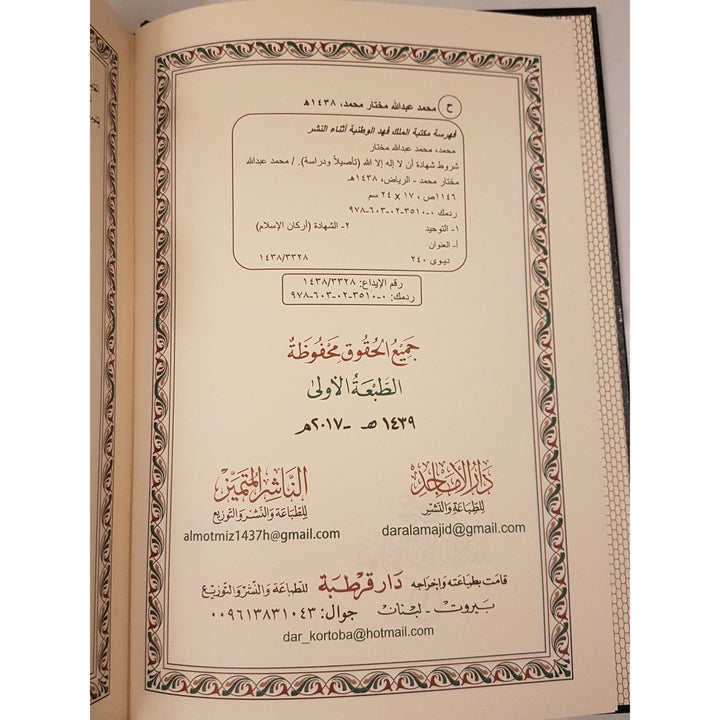 ح محمد عبدالله مختار محمد، ١٤٣٨هـ
فهرسة مكتبة الملك فهد الوطنية أثناء النشر
محمد، محمد عبدالله مختار
شروط شهادة أن لا إله إلا الله (تأصيلاً ودراسة). / محمد عبدالله
مختار محمد - الرياض، ١٤٣٨هـ
١١٤٦ص ، ١٧ x ٢٤ سم
ردمك ٠-٣٥١٠-٠٢-٦٠٣-٩٧٨
١- التوحيد ٢- الشهادة (أركان الإسلام)
أ- العنوان
ديوى ٢٤٠ ١٤٣٨/٣٣٢٨
رقم الإيداع: ١٤٣٨/٣٣٢٨
ردمك: ٠-٣٥١٠-٠٢-٦٠٣-٩٧٨
جَمِيعُ الحُقُوقِ مَحْفُوظَةٌ
الطَّبْعَةُ الأُولَى
١٤٣٩ هـ - ٢٠١٧م
دَارُ الأَمَاجِدِ
لِلطِّبَاعَةِ وَالنَّشْرِ
daralamajid@gmail.com
النَّاشِرُ المُتَمَيِّز
لِلطِّبَاعَةِ وَالنَّشْرِ وَالتَّوْزِيْعِ
almotmiz1437h@gmail.com
قامَت بطباعَته وَإخراجه دَار قُرْطُبَة لِلطِّبَاعَةِ وَالنَّشْرِ وَالتَّوْزِيْعِ
بَيروت - لبْنَان جَوال: ٠٠٩٦١٣٨٣١٠٤٣
dar_kortoba@hotmail.com